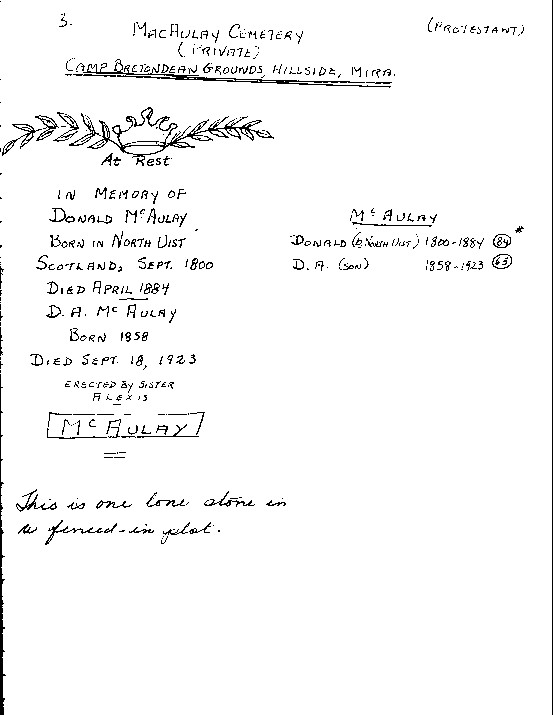 3.
MacAulay Cemetery
(Private)
(Protestant)
Camp Bretondean Grounds, Hillside, Mira.
At Rest
In Memory of
Donald McAulay
Born in North Uist
Scotland, Sept. 1800
Died April 1884
D. A. McAulay
Born 1858
Died Sept. 18, 1923
Erected by Sister
Alexis
McAulay
This is one lone stone in
a fenced-in plot.
McAulay
Donald (b. North Uist) 1800-1884 84 *
D. A. (son) 1858-1923 63